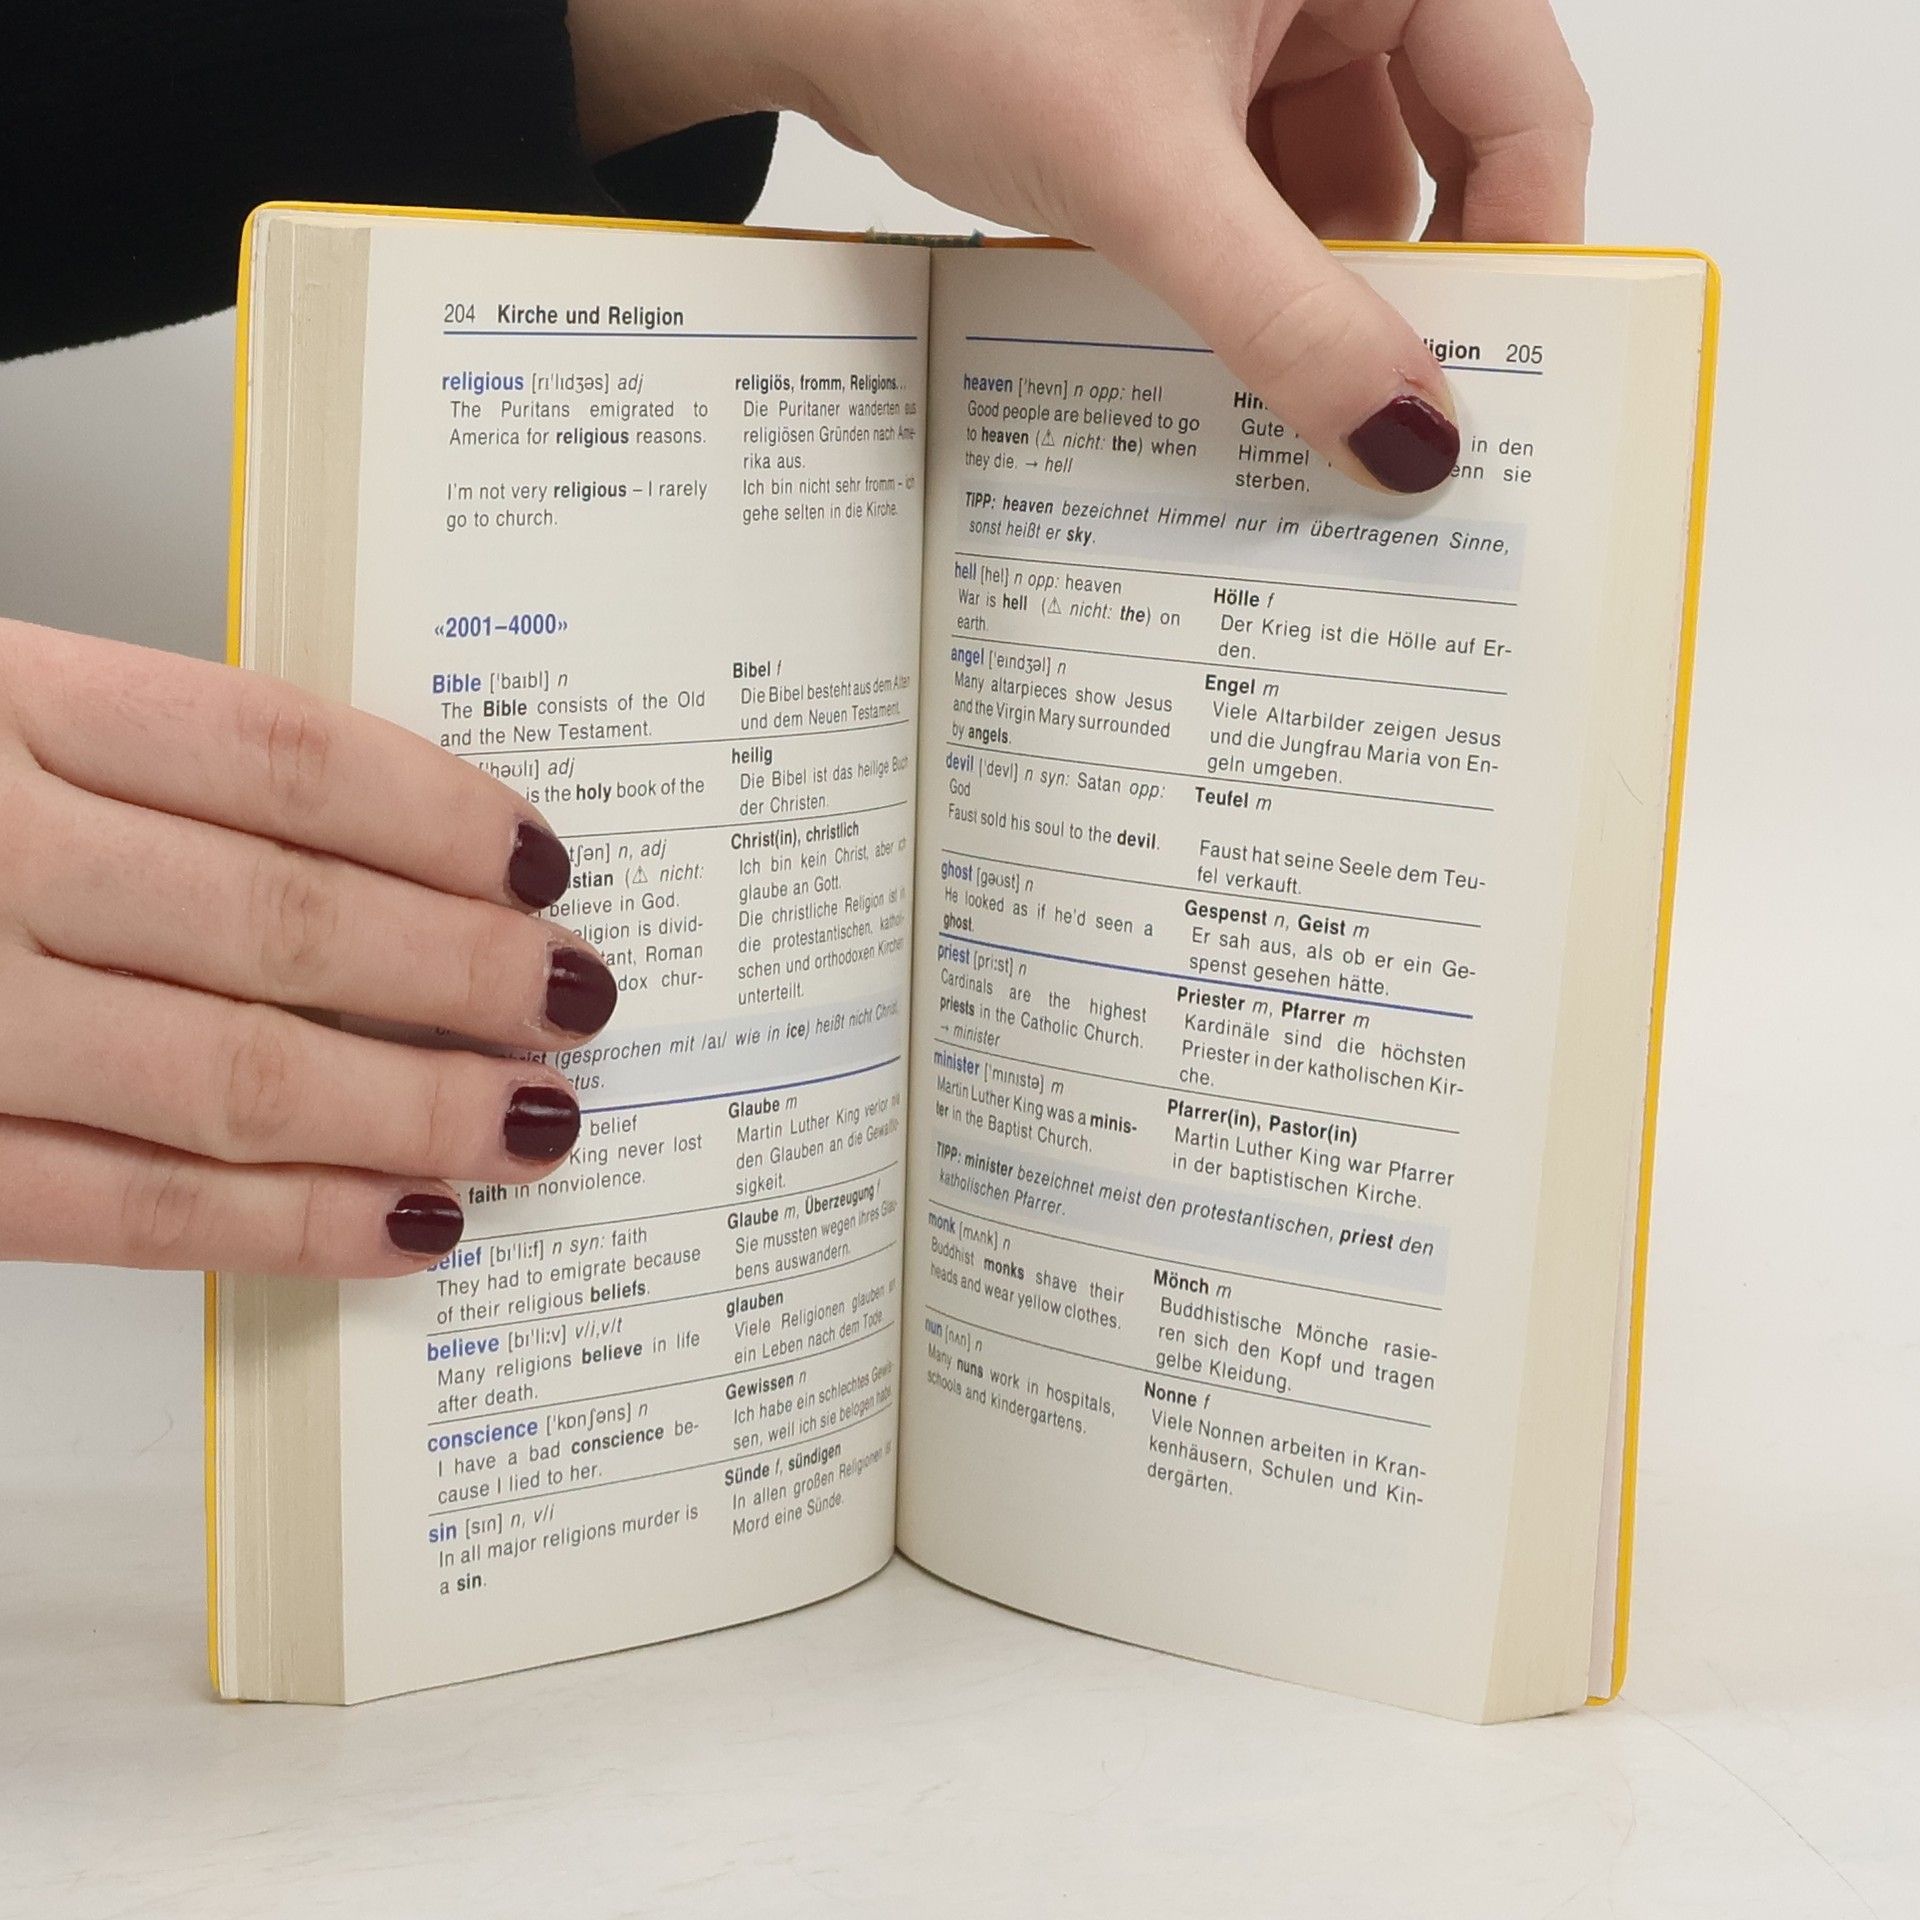 204 Kirche und Religion
religious [rɪ'lɪdʒəs] adj
The Puritans emigrated to
America for religious reasons.
I'm not very religious – I rarely
go to church.
religiös, fromm, Religions...
Die Puritaner wanderten aus
religiösen Gründen nach Ame-
rika aus.
Ich bin nicht sehr fromm – ich
gehe selten in die Kirche.
«2001–4000»
Bible ['baɪbl] n
The Bible consists of the Old
and the New Testament.
Bibel f
Die Bibel besteht aus dem Alten
und dem Neuen Testament.
['həʊlɪ] adj
is the holy book of the
heilig
Die Bibel ist das heilige Buch
der Christen.
tʃən] n, adj
stian (⚠ nicht:
believe in God.
eligion is divid-
tant, Roman
dox chur-
Christ(in), christlich
Ich bin kein Christ, aber ich
glaube an Gott.
Die christliche Religion ist in
die protestantischen, katholi-
schen und orthodoxen Kirchen
unterteilt.
(gesprochen mit /aɪ/ wie in ice) heißt nicht Christ,
stus.
belief
King never lost
faith in nonviolence.
Glaube m
Martin Luther King verlor nie
den Glauben an die Gewaltlo-
sigkeit.
belief [bɪ'li:f] n syn: faith
They had to emigrate because
of their religious beliefs.
Glaube m, Überzeugung f
Sie mussten wegen ihres Glau-
bens auswandern.
believe [bɪ'li:v] v/i, v/t
Many religions believe in life
after death.
glauben
Viele Religionen glauben an
ein Leben nach dem Tode.
conscience ['kɒnʃəns] n
I have a bad conscience be-
cause I lied to her.
Gewissen n
Ich habe ein schlechtes Gewis-
sen, weil ich sie belogen habe.
sin [sɪn] n, v/i
In all major religions murder is
a sin.
Sünde f, sündigen
In allen großen Religionen ist
Mord eine Sünde.
igion 205
heaven ['hevn] n opp: hell
Good people are believed to go
to heaven (⚠ nicht: the) when
they die. → hell
Him
Gute in den
Himmel enn sie
sterben.
TIPP: heaven bezeichnet Himmel nur im übertragenen Sinne,
sonst heißt er sky.
hell [hel] n opp: heaven
War is hell (⚠ nicht: the) on
earth.
Hölle f
Der Krieg ist die Hölle auf Er-
den.
angel ['eɪndʒəl] n
Many altarpieces show Jesus
and the Virgin Mary surrounded
by angels.
Engel m
Viele Altarbilder zeigen Jesus
und die Jungfrau Maria von En-
geln umgeben.
devil ['devl] n syn: Satan opp:
God
Faust sold his soul to the devil.
Teufel m
Faust hat seine Seele dem Teu-
fel verkauft.
ghost [gəʊst] n
He looked as if he'd seen a
ghost.
Gespenst n, Geist m
Er sah aus, als ob er ein Ge-
spenst gesehen hätte.
priest [pri:st] n
Cardinals are the highest
priests in the Catholic Church.
→ minister
Priester m, Pfarrer m
Kardinäle sind die höchsten
Priester in der katholischen Kir-
che.
minister ['mɪnɪstə] m
Martin Luther King was a minis-
ter in the Baptist Church.
Pfarrer(in), Pastor(in)
Martin Luther King war Pfarrer
in der baptistischen Kirche.
TIPP: minister bezeichnet meist den protestantischen, priest den
katholischen Pfarrer.
monk [mʌnk] n
Buddhist monks shave their
heads and wear yellow clothes.
Mönch m
Buddhistische Mönche rasie-
ren sich den Kopf und tragen
gelbe Kleidung.
nun [nʌn] n
Many nuns work in hospitals,
schools and kindergartens.
Nonne f
Viele Nonnen arbeiten in Kran-
kenhäusern, Schulen und Kin-
dergärten.